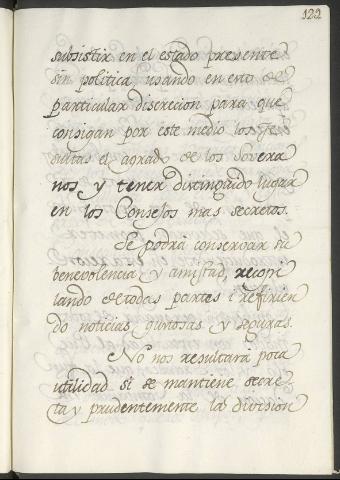 122
subsistir en el estado presente
sin politica usando en esto de
particular discrecion para que
consigan por este medio los Jesu
ditas el agrado de los Sovera
nos y tener distinguido lugar
en los Consejos mas secretos.
Se podrá conservar su
benevolencia y amistad, recopi
lando de todas partes i refirien
do noticias curiosas y seguras.
No nos resultará poca
utilidad si se mantiene secre
ta y prudentemente la division